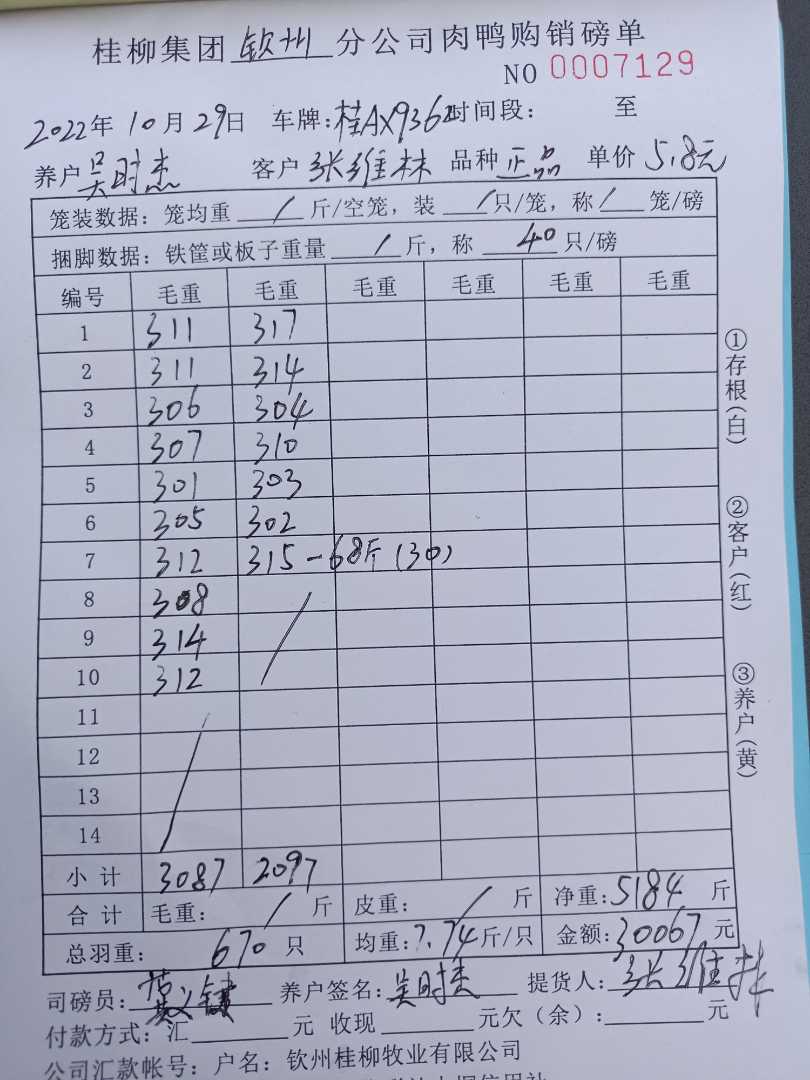 桂柳集团 钦州 分公司肉鸭购销磅单
NO 0007129
2022年 10月 29日 车牌:桂AX9362时间段: 至
养户 吴时杰 客户 张维林 品种 正品 单价 5.8元
笼装数据:笼均重 / 斤/空笼,装 / 只/笼,称 / 笼/磅
捆脚数据:铁筐或板子重量 / 斤,称 40 只/磅
编号 毛重 毛重 毛重 毛重 毛重 毛重
1 311 317
2 311 314
3 306 304
4 307 310
5 301 303
6 305 302
7 312 315-68斤(30)
8 308 /
9 314
10 312
11 /
12
13
14
小计 3087 2097
合计 毛重: / 斤 皮重: / 斤 净重:5184 斤
总羽重: 670 只 均重:7.74斤/只 金额:30067 元
①存根(白)
②客户(红)
③养户(黄)
司磅员: 养户签名:吴时杰 提货人:张维林
付款方式:汇 元 收现 元欠(余): 元
公司汇款帐号:户名:钦州桂柳牧业有限公司